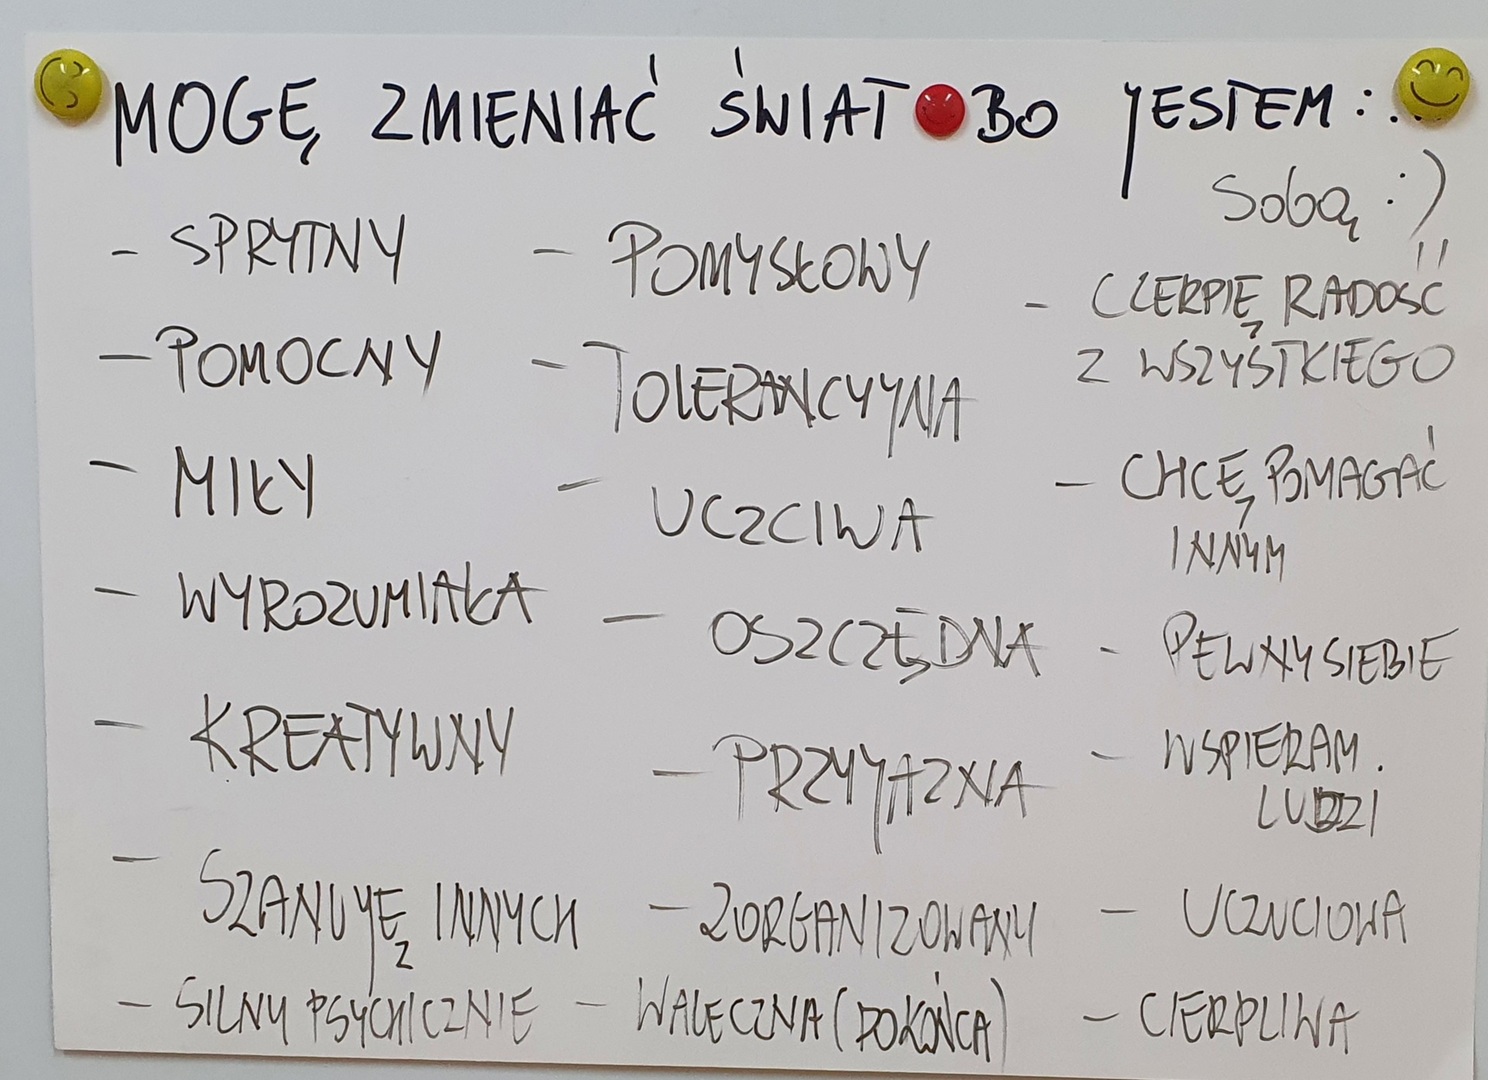 MOGĘ ZMIENIAĆ ŚWIAT BO JESTEM:...
Sobą :)
- SPRYTNY
- POMOCNY
- MIŁY
- WYROZUMIAŁA
- KREATYWNY
- SZANUJĘ INNYCH
- SILNY PSYCHICZNIE
- POMYSŁOWY
- TOLERANCYJNA
- UCZCIWA
- OSZCZĘDNA
- PRZYJAZNA
- ZORGANIZOWANY
- WALECZNA (DO KOŃCA)
- CZERPIĘ RADOŚĆ
Z WSZYSTKIEGO
- CHCĘ POMAGAĆ
INNYM
- PEWNY SIEBIE
- WSPIERAM.
LUDZI
- UCZUCIOWA
- CIERPLIWA